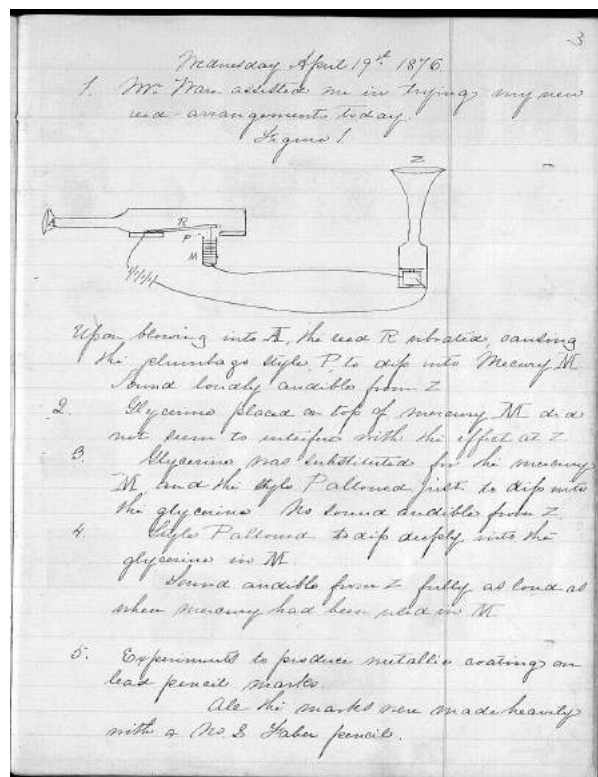 3
Wednesday April 19th 1876.
1. Mr. Ware assisted me in trying my new
reed-arrangements today.
Figure 1
Z
A
R
P
M
Upon blowing into A, the reed R vibrated, causing
the plumbago style, P, to dip into Mecury M
Sound loudly audible from Z
2. Glycerine placed on top of mercury M did
not seem to interfere with the effect at Z.
3. Glycerine was substituted for the mercury
M and the style P allowed just to dip into
the glycerine. No sound audible from Z.
4. Style P allowed to dip deeply into the
glycerine in M.
Sound audible from Z fully as loud as
when mercury had been used in M
5. Experiments to produce metallic coating on
lead pencil marks.
All the marks were made heavily
with a No Faber pencil.